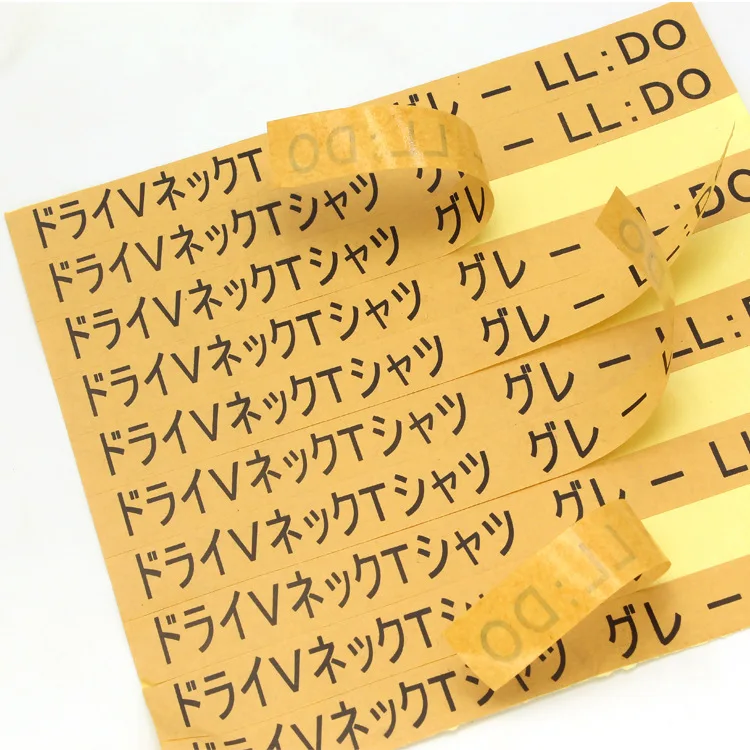 ドライVネックT レー LL:DO
ドライVネックTシャツ グ ー LL:DO
ドライVネックTシャツ グレ
ドライVネックTシャツ グレー LL:DO
ドライVネックTシャツ グレー
ドライVネックTシャツ グレー LL:DO
ドライVネックTシャツ グレー
ドライVネックTシャツ グレー LL
ドライVネックT
ドライVネックTシャツ グレー